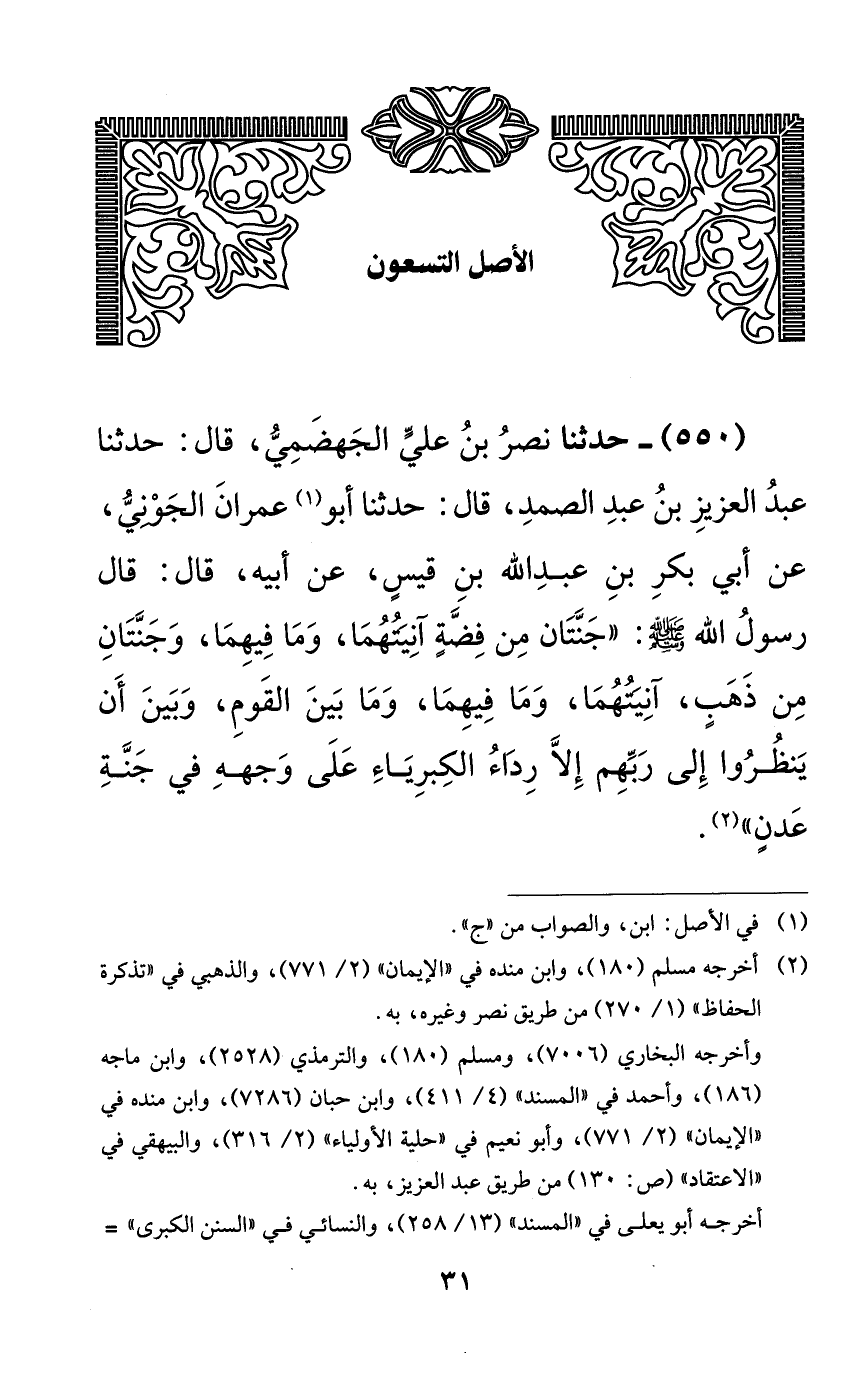 الأصل التسعون
(٥٥٠) ـ حدثنا نصرُ بنُ عليٍّ الجَهضَمِيُّ، قال: حدثنا
عبدُ العزيزِ بنُ عبدِ الصمدِ، قال: حدثنا أبو(١) عمرانَ الجَوْنِيُّ،
عن أبي بكرِ بنِ عبدِالله بنِ قيسٍ، عن أبيه، قال: قال
رسولُ الله ﷺ: «جَنَّتَان مِن فِضَّةٍ آنِيَتُهُمَا، وَمَا فِيهِمَا، وَجَنَّتَانِ
مِن ذَهَبٍ، آنِيَتُهُمَا، وَمَا فِيهِمَا، وَمَا بَينَ القَومِ، وَبَينَ أَن
يَنظُرُوا إِلى رَبِّهِم إِلاَّ رِدَاءُ الكِبرِيَاءِ عَلَى وَجهِهِ في جَنَّةِ
عَدنٍ»(٢).
(١) في الأصل: ابن، والصواب من «ج».
(٢) أخرجه مسلم (١٨٠)، وابن منده في «الإيمان» (٢/ ٧٧١)، والذهبي في «تذكرة
الحفاظ» (١/ ٢٧٠) من طريق نصر وغيره، به.
وأخرجه البخاري (٧٠٠٦)، ومسلم (١٨٠)، والترمذي (٢٥٢٨)، وابن ماجه
(١٨٦)، وأحمد في «المسند» (٤/ ٤١١)، وابن حبان (٧٢٨٦)، وابن منده في
«الإيمان» (٢/ ٧٧١)، وأبو نعيم في «حلية الأولياء» (٢/ ٣١٦)، والبيهقي في
«الاعتقاد» (ص: ١٣٠) من طريق عبد العزيز، به.
أخرجه أبو يعلى في «المسند» (١٣/ ٢٥٨)، والنسائي في «السنن الكبرى» =
٣١